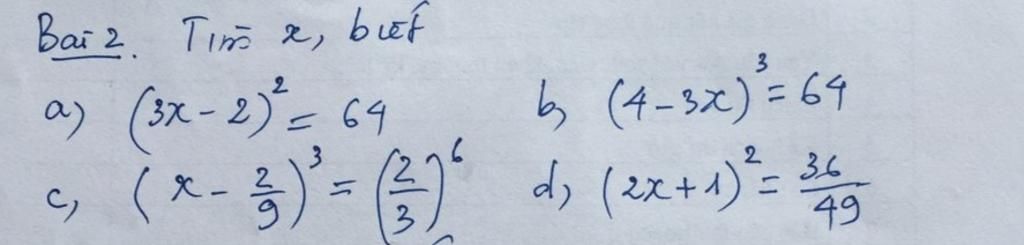 Bài 2. Tìm x, biết
a) (3x - 2)² = 64 b, (4 - 3x)³ = 64
c, (x - 2/9)³ = (2/3)⁶ d, (2x + 1)² = 36/49